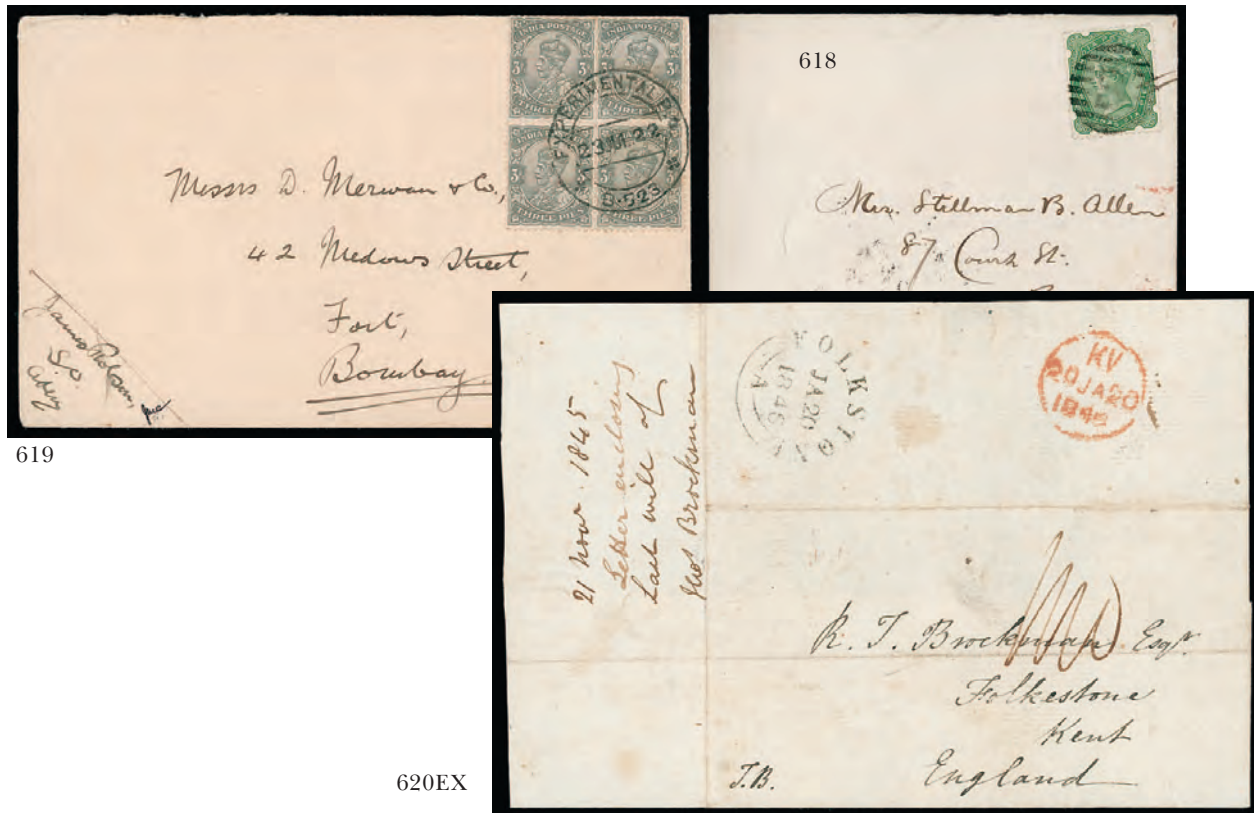 INDIA POSTAGE
INDIA POSTAGE
3
3
THREE PIES
THREE PIES
EXPERIMENTAL P.O.
B-523
Messrs D. Merwan & Co.,
42 Medows Street,
Fort,
Bombay.
619
618
Mrs. Stillman B. Allen
87 Court St.
21 Nov 1845
Letter enclosing
Last will of
Brockman
FOLKSTONE
JA20
1846
A
KV
20JA20
1846
R. T. Brockman Esqr.
Folkestone
Kent
England
J.B.
620EX